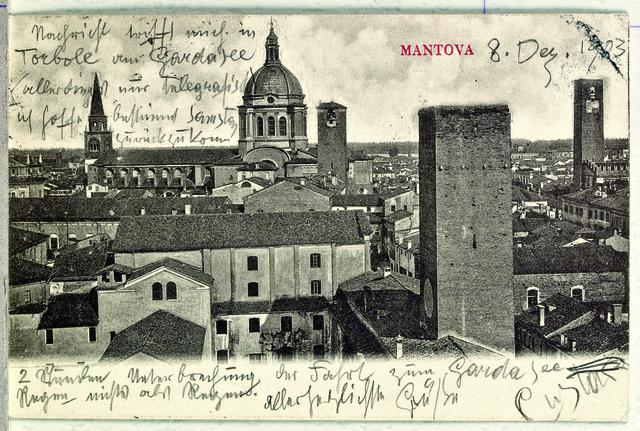 Nachricht trifft mich in
Torbole am Gardasee
(allerdings nur telegrafisch
ich hoffe bestimmt Samstag
zurückzukom
MANTOVA
8. Dez. 1903
2 Stunden Unterbrechung der Fahrt zum Gardasee
Regen nichts als Regen. allerherzlichste Grüße